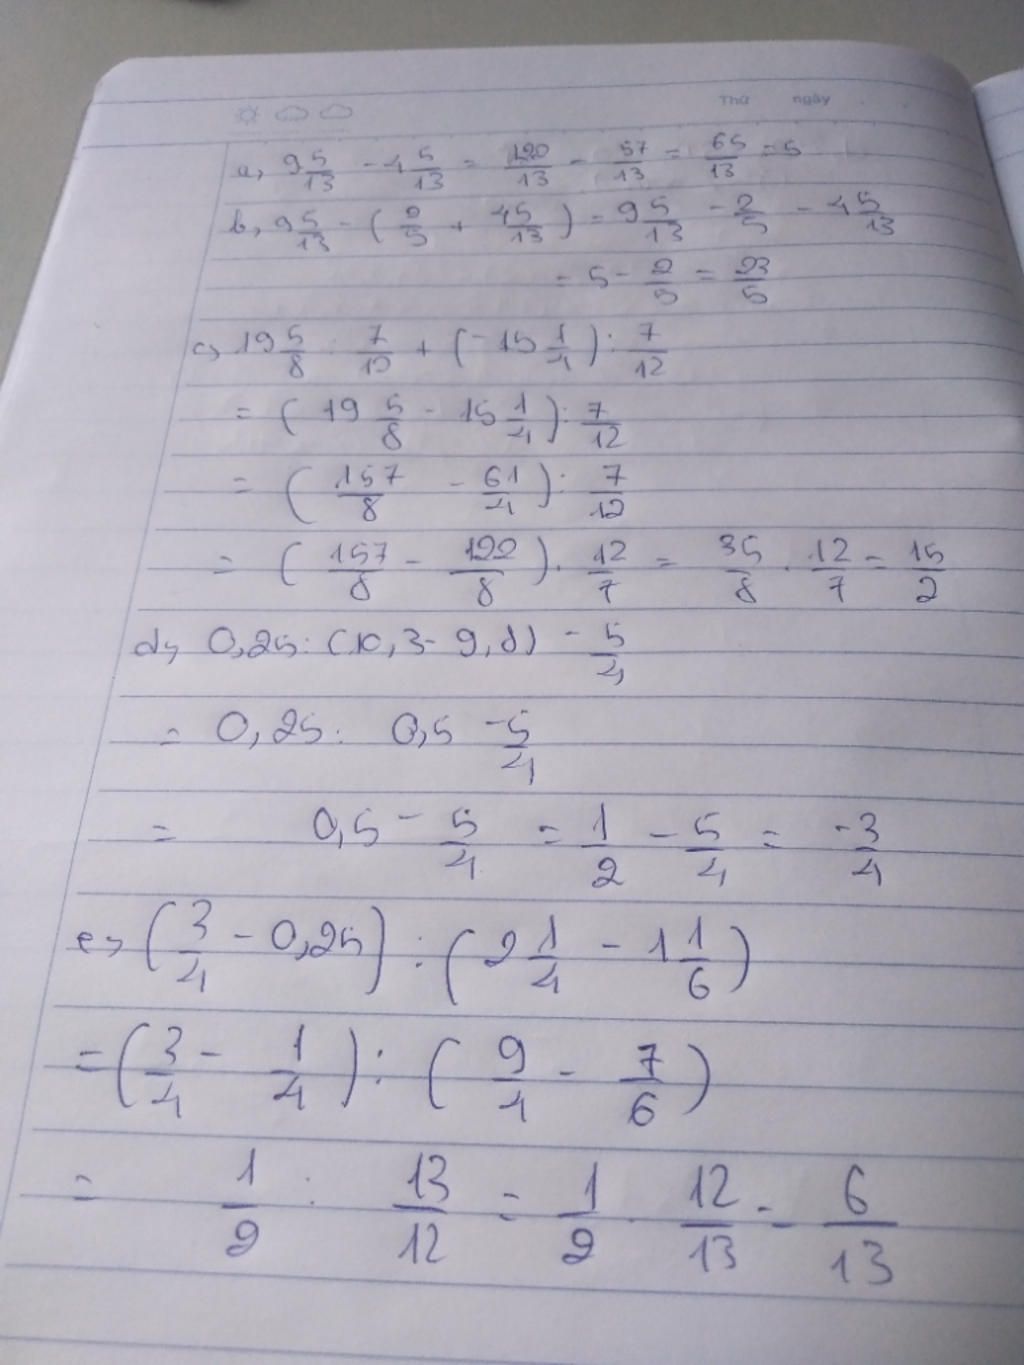 Thứ ngày
a, 9 5/13 - 4 5/13 = 120/13 - 57/13 = 65/13 = 5
b, 9 5/13 - ( 2/5 + 4 5/13 ) = 9 5/13 - 2/5 - 4 5/13
= 5 - 2/5 = 23/5
c, 19 5/8 : 7/12 + (-15 1/4) : 7/12
= ( 19 5/8 - 15 1/4 ) : 7/12
= ( 157/8 - 61/4 ) : 7/12
= ( 157/8 - 122/8 ) . 12/7 = 35/8 . 12/7 = 15/2
d, 0,25 : (10,3 - 9,8) - 5/4
= 0,25 : 0,5 - 5/4
= 0,5 - 5/4 = 1/2 - 5/4 = -3/4
e, ( 3/4 - 0,25 ) : ( 2 1/4 - 1 1/6 )
= ( 3/4 - 1/4 ) : ( 9/4 - 7/6 )
= 1/2 : 13/12 = 1/2 . 12/13 = 6/13